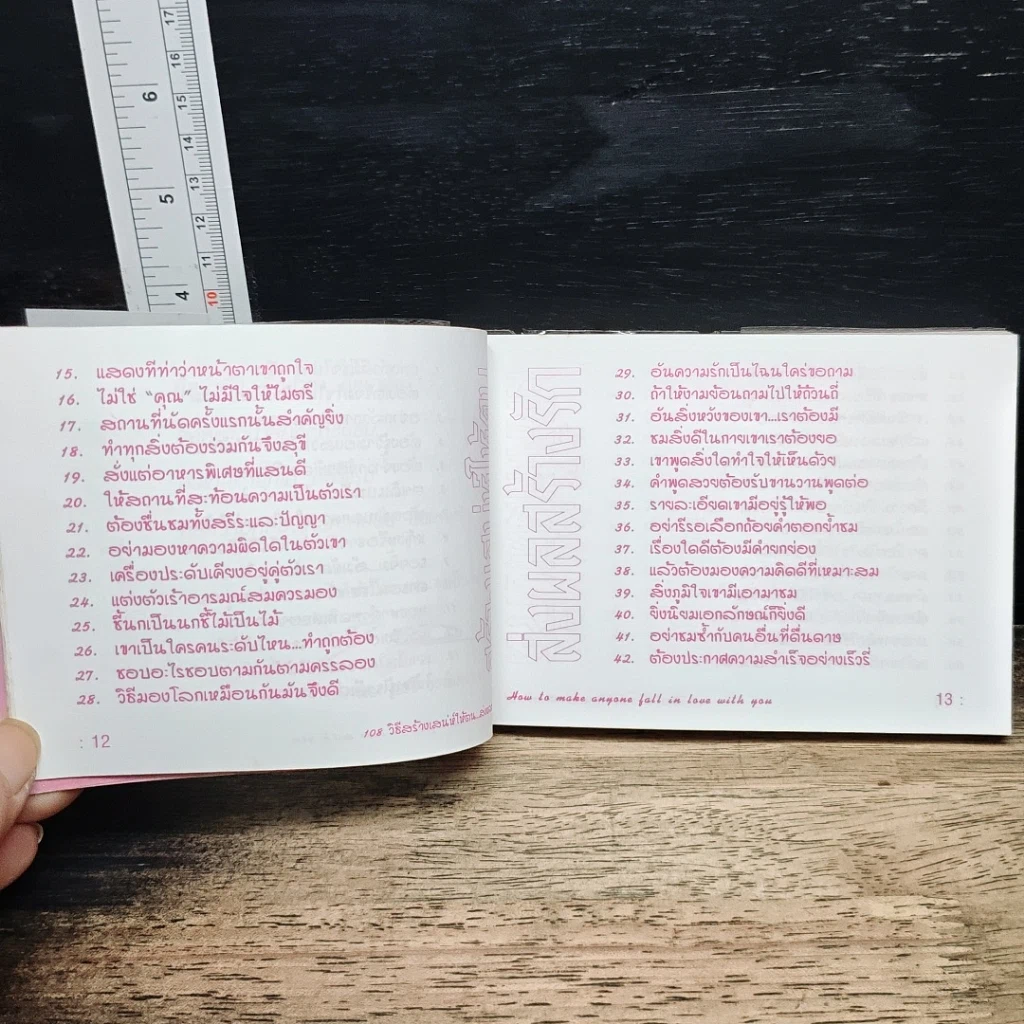 15. แสดงทีท่าว่าหน้าตาเขาถูกใจ
16. ไม่ใช่ “คุณ” ไม่มีใจให้ไมตรี
17. สถานที่นัดครั้งแรกนั้นสำคัญยิ่ง
18. ทำทุกสิ่งต้องร่วมกันจึงสุขี
19. สั่งแต่อาหารพิเศษที่แสนดี
20. ให้สถานที่สะท้อนความเป็นตัวเรา
21. ต้องชื่นชมทั้งสรีระและปัญญา
22. อย่ามองหาความผิดใดในตัวเขา
23. เครื่องประดับเคียงอยู่คู่ตัวเรา
24. แต่งตัวเร้าอารมณ์สมควรมอง
25. ชี้นกเป็นนกชี้ไม้เป็นไม้
26. เขาเป็นใครคนระดับไหน...ทำถูกต้อง
27. ชอบอะไรชอบตามกันตามครรลอง
28. วิธีมองโลกเหมือนกันมันจึงดี
: 12
108 วิธีสร้างเสน่ห์ให้คุณ...
ส่งผลสร้างรัก
29. อันความรักเป็นไฉนใคร่ขอถาม
30. ถ้าให้งามย้อนถามไปให้ถ้วนถี่
31. อันสิ่งหวังของเขา...เราต้องมี
32. ชมสิ่งดีในกายเขาเราต้องยอ
33. เขาพูดสิ่งใดทำใจให้เห็นด้วย
34. คำพูดสวยต้องรับขานวานพูดต่อ
35. รายละเอียดเขามีอยู่รู้ให้พอ
36. อย่ารีรอเลือกถ้อยคำตอกย้ำชม
37. เรื่องใดดีต้องมีคำยกย่อง
38. แล้วต้องมองความคิดดีที่เหมาะสม
39. สิ่งภูมิใจเขามีเอามาชม
40. ยิ่งนิยมเอกลักษณ์ก็ยิ่งดี
41. อย่าชมซ้ำกับคนอื่นที่ดื่นดาษ
42. ต้องประกาศความสำเร็จอย่างเร็วรี่
How to make anyone fall in love with you
13 :
6
5
4
17
16
15
14
13
12
11
10